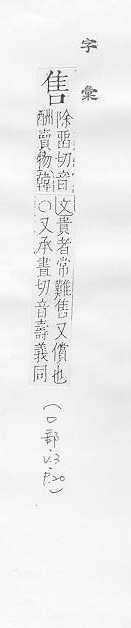 字彙
售
除留切音
酬賣物韓
文貴者常難售又償也
○又承晝切音壽義同
(口部.V.3
P.20)